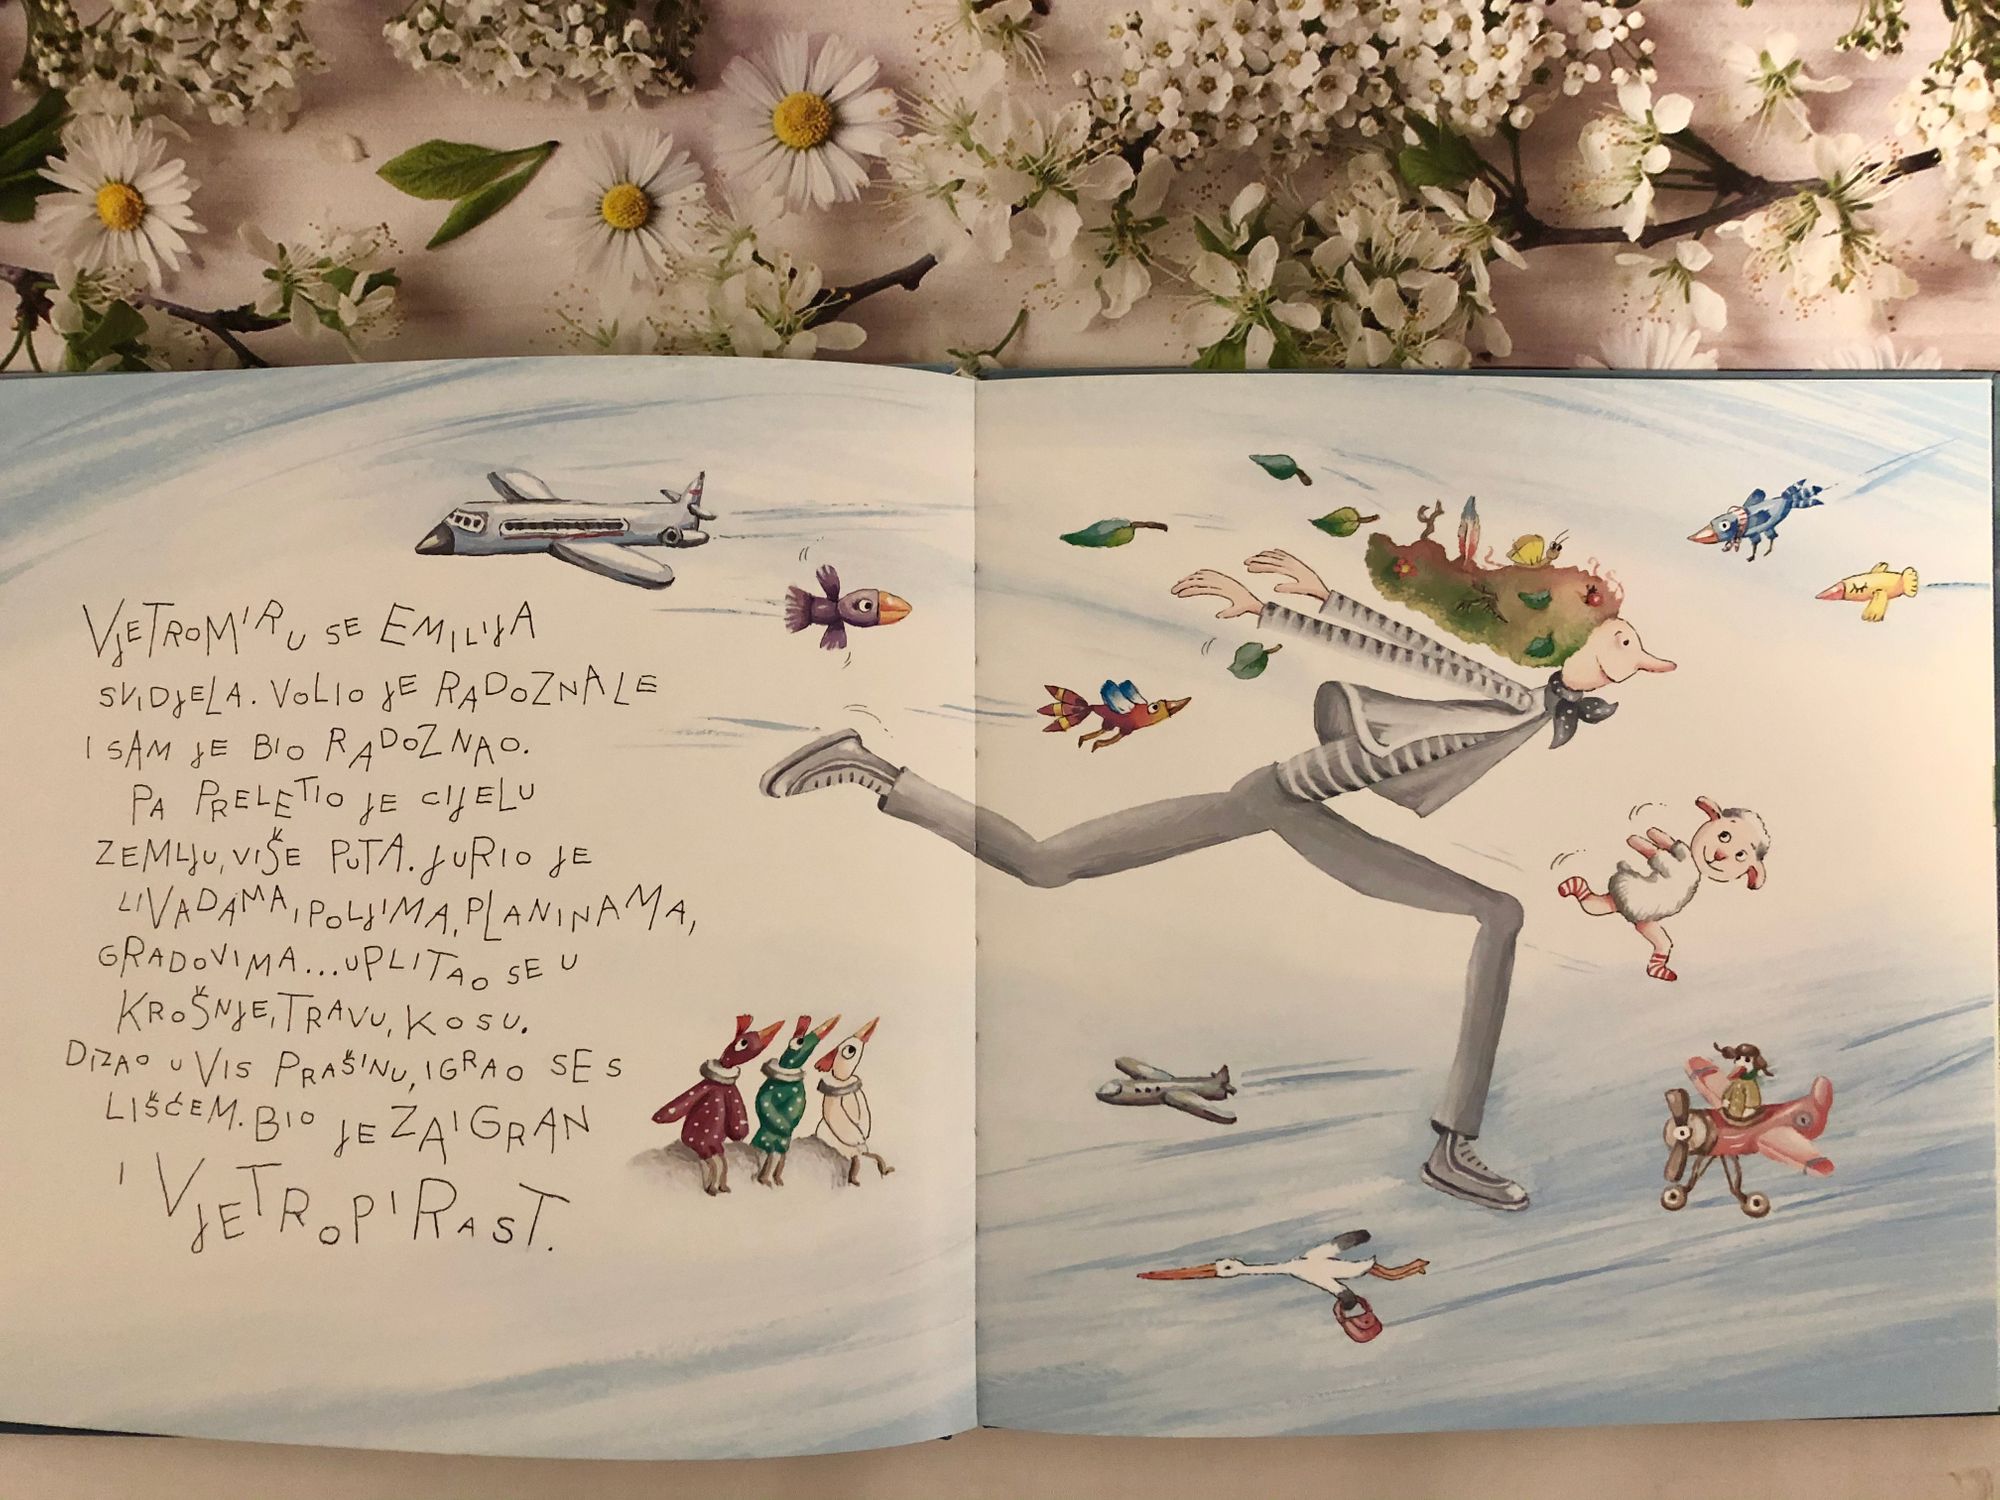 VJETROMIRU SE EMILIJA
SVIDJELA. VOLIO JE RADOZNALE
I SAM JE BIO RADOZNAO.
PA PRELETIO JE CIJELU
ZEMLJU, VIŠE PUTA. JURIO JE
LIVADAMA, POLJIMA, PLANINAMA,
GRADOVIMA... UPLITAO SE U
KROŠNJE, TRAVU, KOSU.
DIZAO U VIS PRAŠINU, IGRAO SE S
LIŠĆEM. BIO JE ZAIGRAN
I VJETROPIRAST.